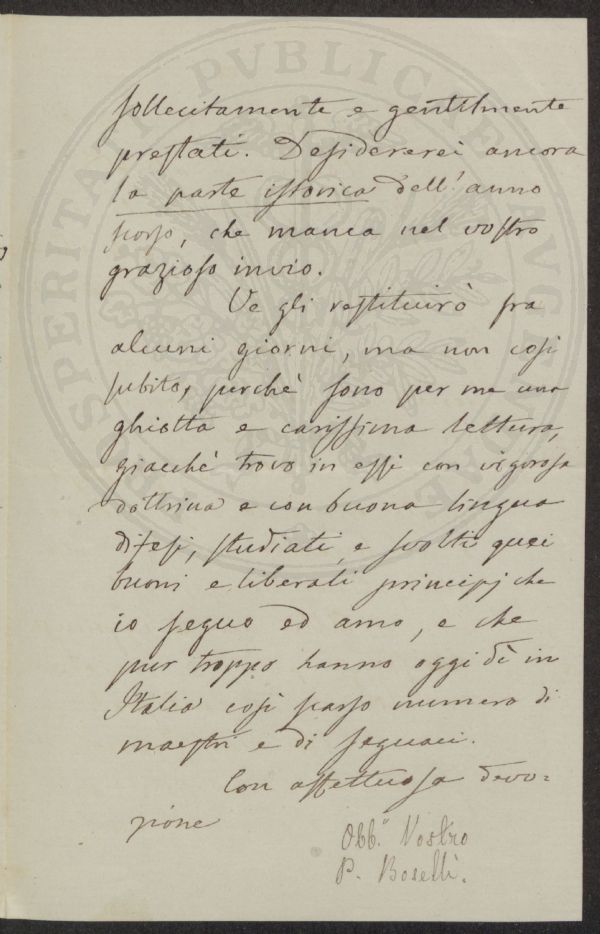 sollecitamente e gentilmente
prestati. Desidererei ancora
la parte istorica dell'anno
scorso, che manca nel vostro
grazioso invio.
Ve gli restituirò fra
alcuni giorni, ma non così
subito, perchè sono per me una
ghiotta e carissima lettura,
giacchè trovo in essi con vigorosa
dottrina e con buona lingua
difesi, studiati, e svolti quei
buoni e liberali principj che
io seguo ed amo, e che
pur troppo hanno oggi dì in
Italia così scarso numero di
maestri e di seguaci.
Con affettuosa devo=
zione
Obb.o Vostro
P. Boselli.